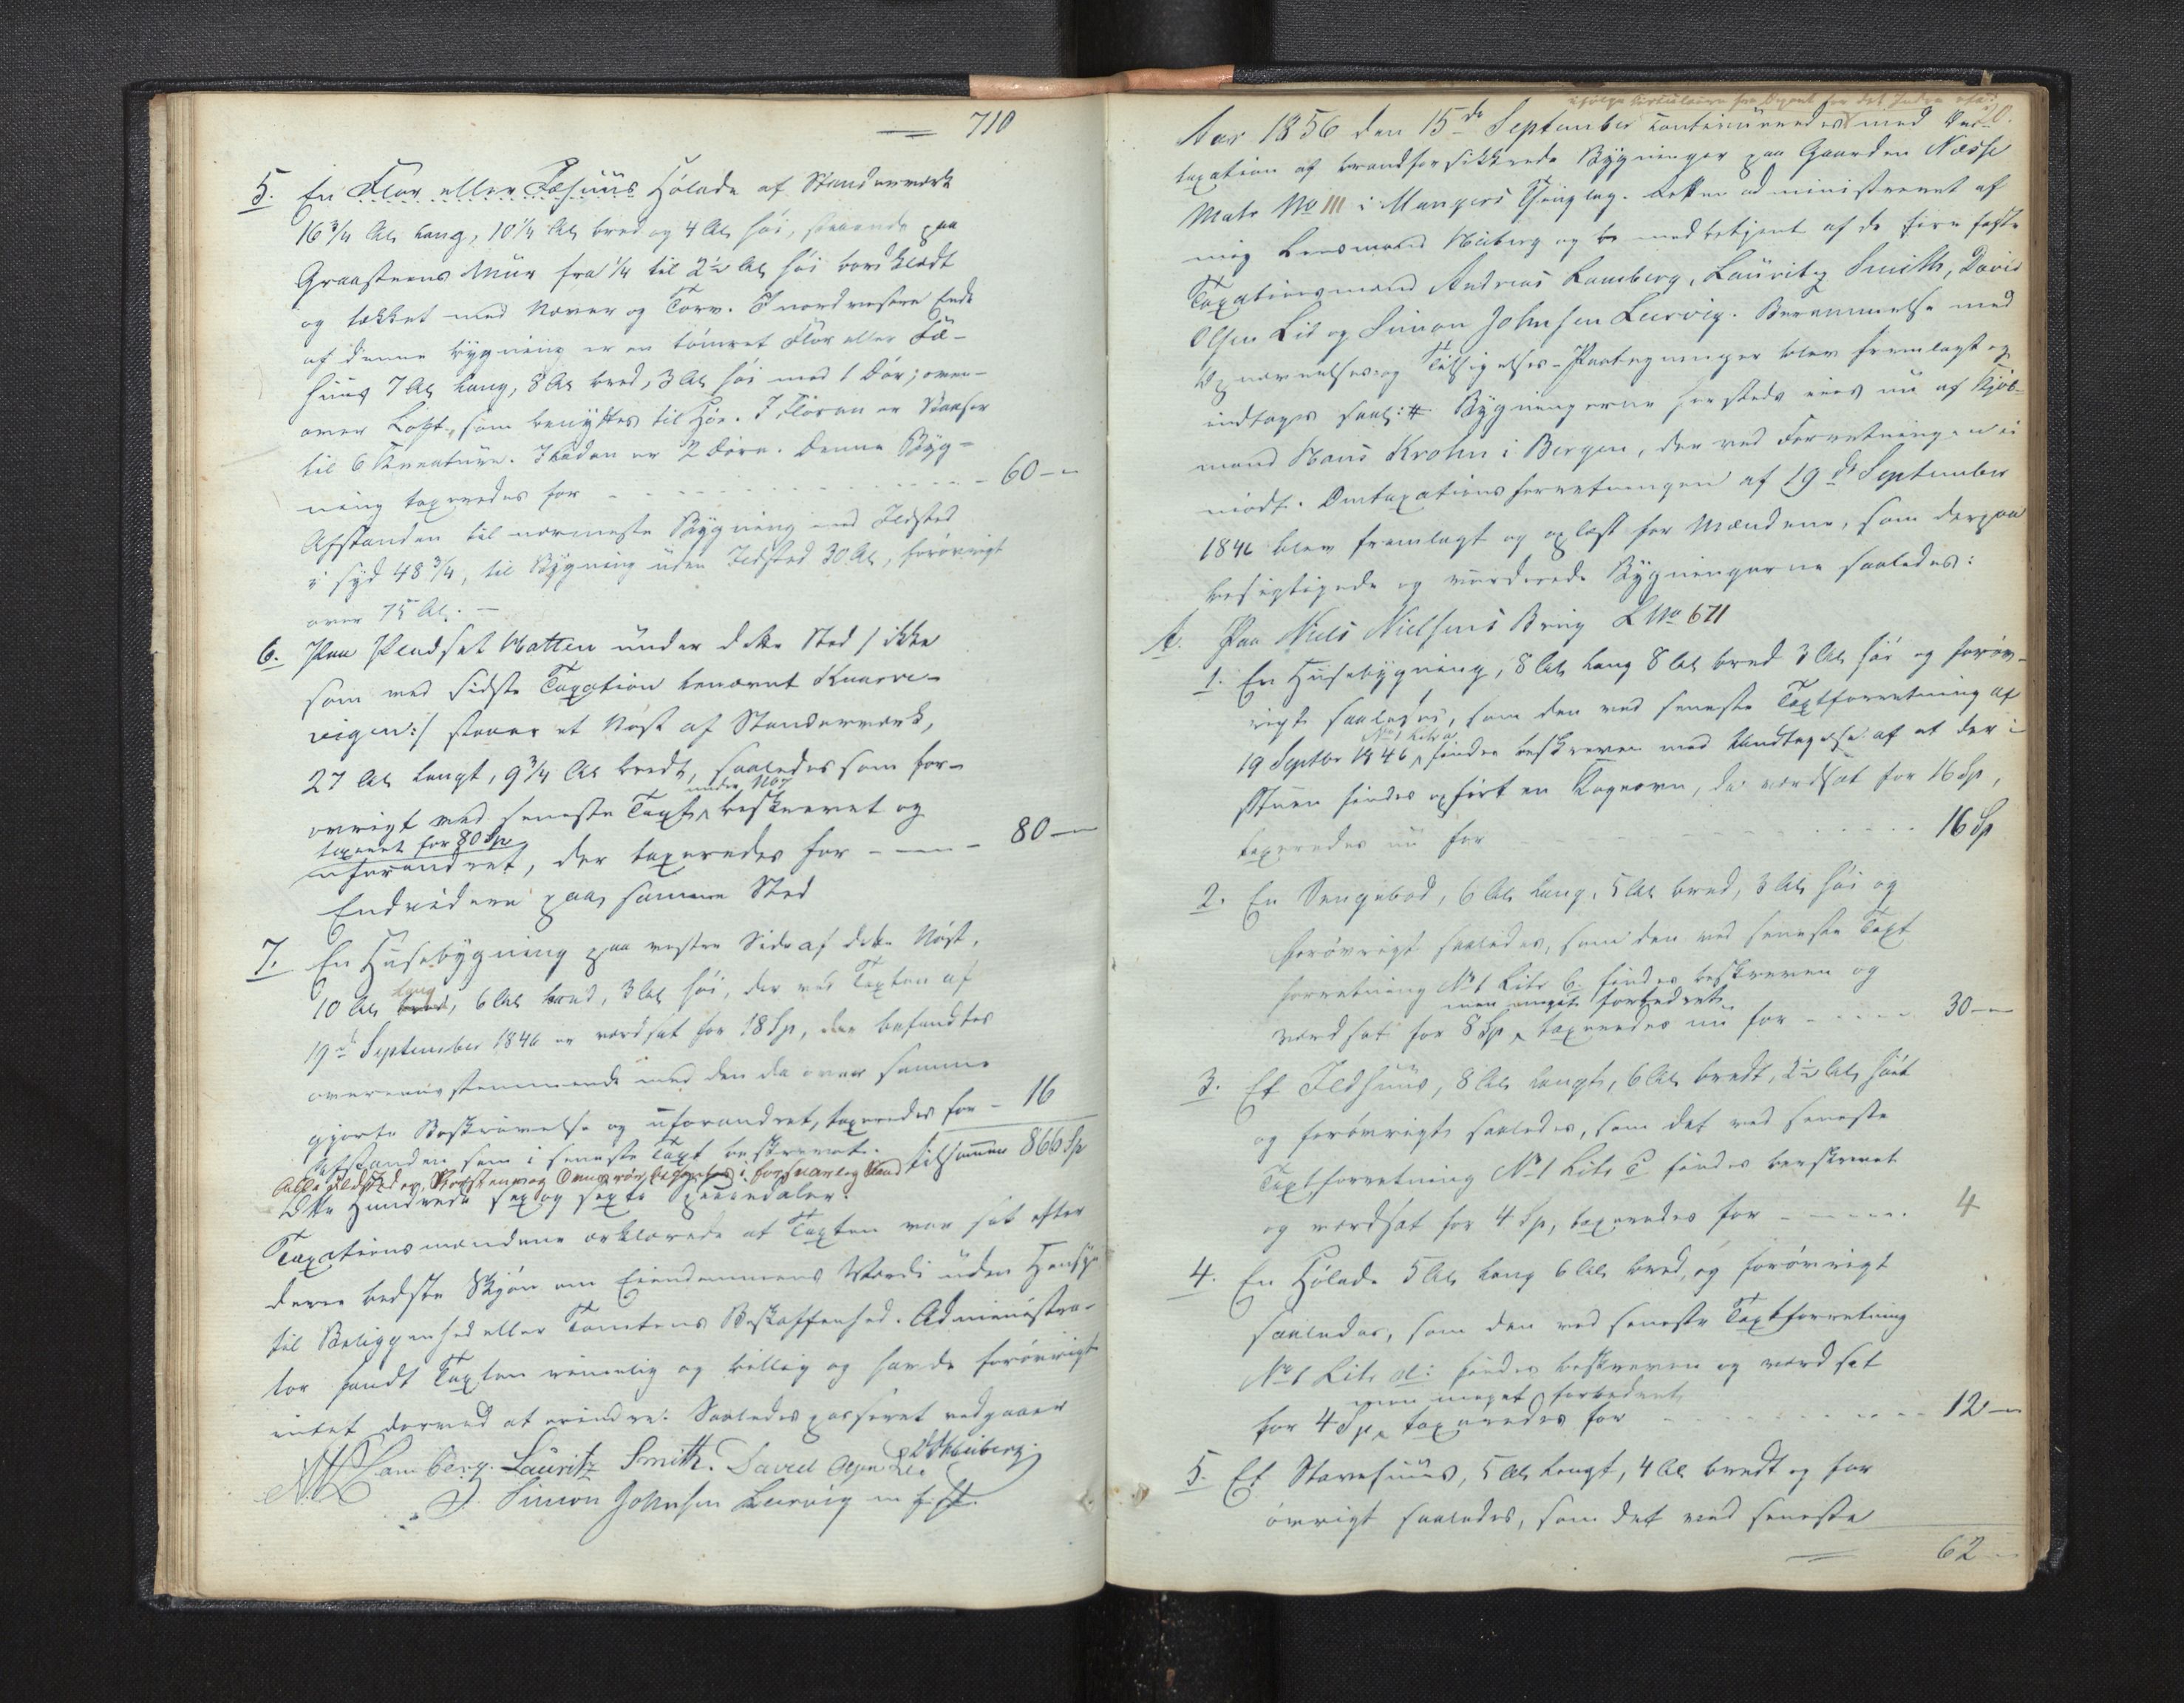 710
5. En Flor eller Fæhuus Hølade af Standerværk
16 3/4 Al. lang, 10 1/4 Al. bred og 4 Al. høi, staaende paa
Graasteens Muur fra 1/4 til 2 1/2 Al. høi bordklædt
og tækket med Næver og Torv. I nordvestre Ende
af denne Bygning er en tømret Flor eller Fæ-
huus 7 Al. lang, 8 Al. bred, 3 Al. høi med 1 Dør; oven-
over Loft, som benyttes til Høe. I Floren er Baaser
til 6 Kreature. I Laden er 2 Døre. Denne Byg-
ning taxeredes for - - - 60 -
Afstanden til nærmeste Bygning med Ildsted
i syd 48 3/4, til Bygning uden Ildsted 30 Al., forøvrigt
over 75 Al. -
6. Paa Pladset Hatten under dette Sted /: ikke
som ved sidste Taxation benævnt Knarre-
vigen :/ staaer et Nøst af Standerværk,
27 Al. langt, 9 3/4 Al. bredt, saaledes som for-
under No 7
øvrigt ved seneste Taxt beskrevet og
taxeret for 80 Sp.
uforandret, der taxeredes for - - - 80 -
Endvidere paa samme Sted
7. En Huusebygning paa vestre Side af dette Nøst,
lang
10 Al. bred, 6 Al. bred, 3 Al. høi, der ved Taxten af
19de September 1846 er værdsat for 18 Sp, der befandtes
overeensstemmende med den da over samme
gjorte Beskrivelse og uforandret, taxeredes for - 16
Afstanden som i seneste Taxt beskrevet. tilsammen 866 Sp
Alle Ildsteder, Skorstene og Ovnsrør befandtes i forsvarlig Stand
Otte Hundrede sex og sexti Speciedaler.
Taxationsmændene erklærede at Taxten var sat efter
deres bedste Skjøn om Eiendommens Værdi uden Hensyn
til Beliggenhed eller Tomtens Beskaffenhed. Administra-
tor fandt Taxten rimelig og billig og havde forøvrigt
intet derved at erindre. Saaledes passeret vedgaaer
Lamberg. Lauritz Smith. David Olsen Lie. Heiberg.
Simon Johnsen Leervig m. f. P.
ifølge Circulaire fra Depart. for det Indre
Aar 1856 den 15de September continueredes med Om-
taxation af brandforsikkrede Bygninger paa Gaarden Næsse
Matr No III i Mangers Thinglag. Retten administreret af
mig Lensmand Heiberg og medbetjent af de fire faste
Taxationsmænd Andreas Lamberg, Lauritz Smith, David
Olsen Lie og Simon Johnsen Leervig. Berammelse med
Opnævnelses- og Tilsigelses-Paategninger blev fremlagt og
indtages saal: # Bygningerne hersteds eies nu af Kjøb-
mand Hans Krohn i Bergen, der ved Forretningen ei
mødt. Omtaxationsforretningen af 19de September
1846 blev fremlagt og oplæst for Mændene, som derpaa
besigtigede og vurderede Bygningerne saaledes:
A. Paa Niels Nielsens Brug L No 671
1. En Huusebygning, 8 Al. lang 8 Al. bred 3 Al. høi og forøv-
rigt saaledes, som den ved seneste Taxtforretning af
No 1 Litr a
19 Septbr 1846, findes beskreven med Undtagelse af at der i
Stuen findes opført en Kogeovn, da værdsat for 16 Sp,
taxeredes nu for - - - 16 Sp
2. En Sengebod, 6 Al. lang, 5 Al. bred, 3 Al. høi og
forøvrigt saaledes, som den ved seneste Taxt
forretning No 1 Litr b. findes beskreven og
men meget forbedret
værdsat for 8 Sp, taxeredes nu for - - - 30 -
3. Et Ildhuus, 8 Al. langt, 6 Al. bredt, 2 1/2 Al. høit
og forøvrigt saaledes, som det ved seneste
Taxtforretning No 1 Litr c findes beskrevet
og værdsat for 4 Sp, taxeredes for - - - 4
4. En Hølade 5 Al. lang 6 Al. bred, og forøvrigt
saaledes, som den ved seneste Taxtforretning
No 1 Litr d: findes beskreven og værdsat
men meget forbedret
for 4 Sp, taxeredes for - - - 12 -
5. Et Stavehuus, 5 Al. langt, 4 Al. bredt og for
øvrigt saaledes, som det ved seneste
62 -